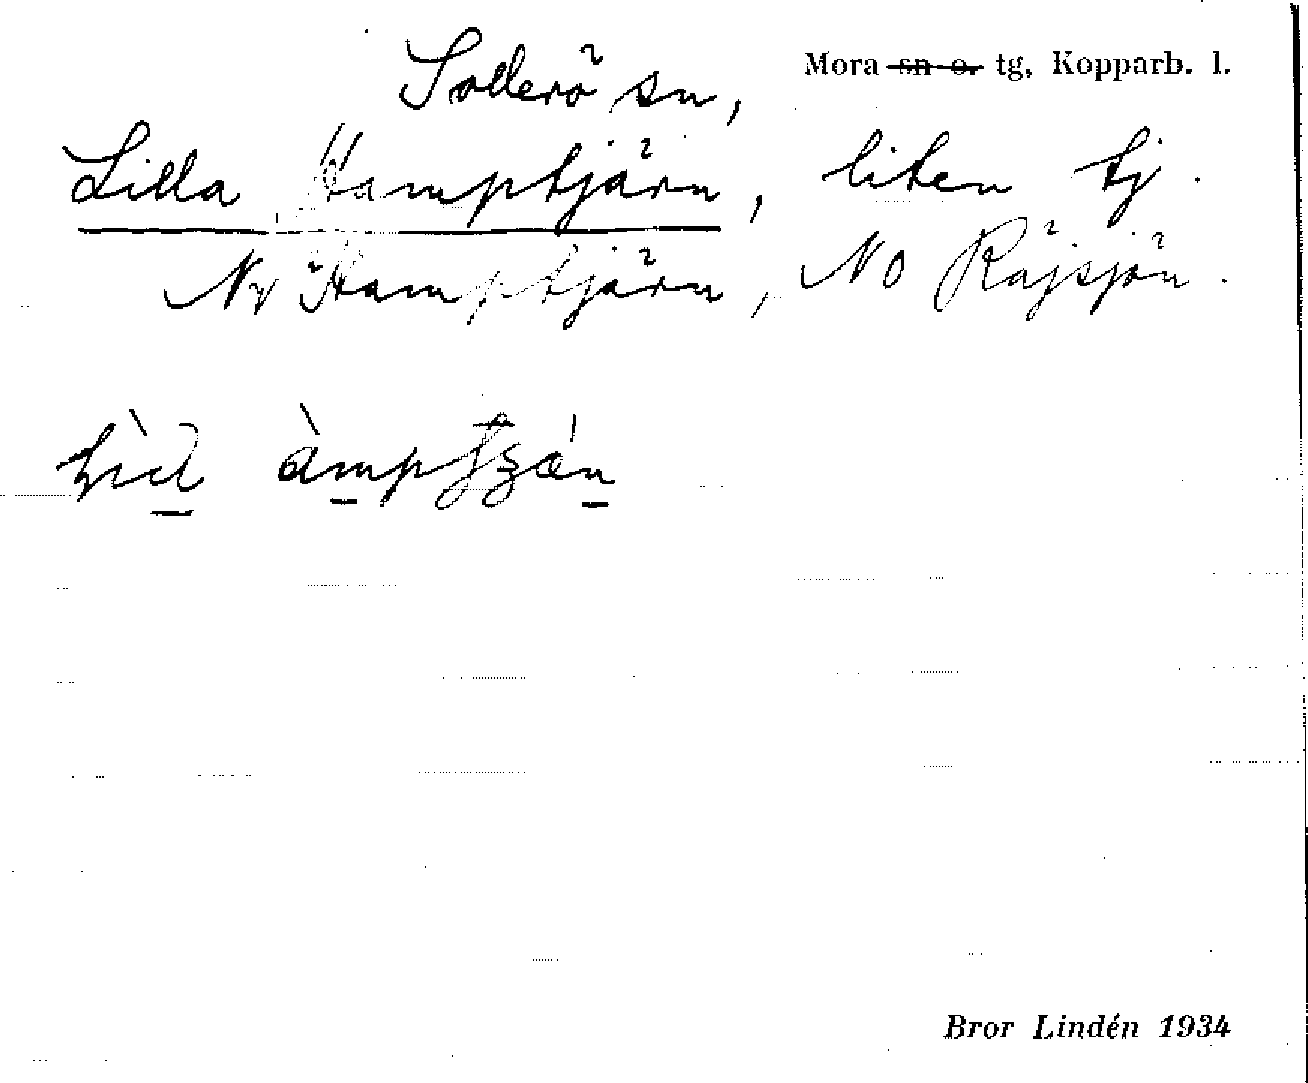 Sollerö sn, Mora sn o. tg, Kopparb. l.
Lilla Hamptjärn, liten tj.
NV Hamptjärn, NO Räjsjön.
Bror Lindén 1934